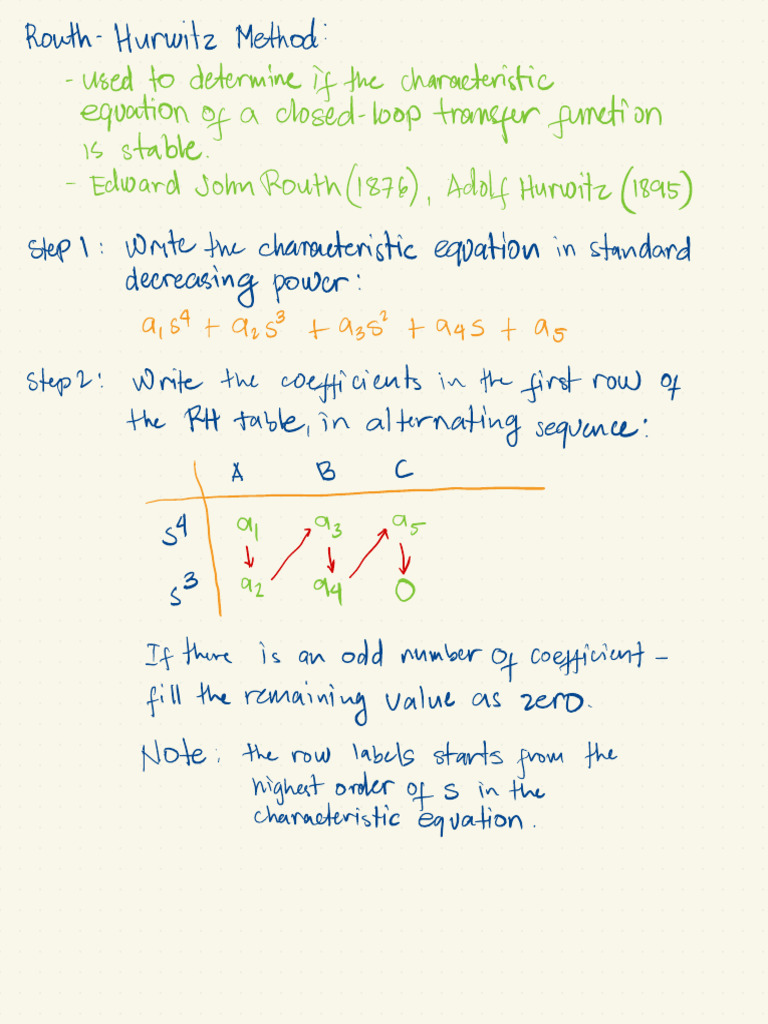 Routh-Hurwitz Method:
- used to determine if the characteristic
equation of a closed-loop transfer function
is stable.
- Edward John Routh (1876), Adolf Hurwitz (1895)
Step 1: Write the characteristic equation in standard
decreasing power:
a₁s⁴ + a₂s³ + a₃s² + a₄s + a₅
Step 2: Write the coefficients in the first row of
the RH table, in alternating sequence:
A B C
s⁴ a₁ a₃ a₅
s³ a₂ a₄ 0
If there is an odd number of coefficient -
fill the remaining value as zero.
Note: the row labels starts from the
highest order of s in the
characteristic equation.